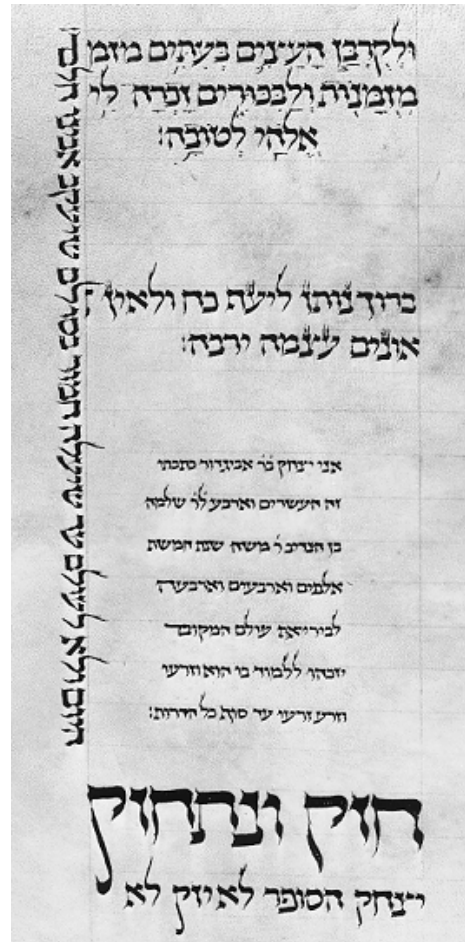 וּלְקָרְבַּן הָעֵצִים בְּעִתִּים מזמ
מְזֻמָּנוֹת וְלַבִּכּוּרִים זָכְרָה לִּי
אֱלֹהַי לְטוֹבָה׃
ברוך נותן ליעף כח ולאין
אונים עצמה ירבה׃
אני יצחק בר אביגדור כתבתי
זה העשרים וארבע לר שלמה
בן הנדיב ר משה שנת חמשת
אלפים וארבעים וארבעה
לביריאת עולם המקום
יזכהו ללמוד בו הוא וזרעו
וזרע זרעו עד סוף כל הדורות׃
חזק ונתחזק
יצחק הסופר לא יזק לא
היום ולא לעולם עד שיעלה חמור בסולם שיעקב אבינו חלם׃